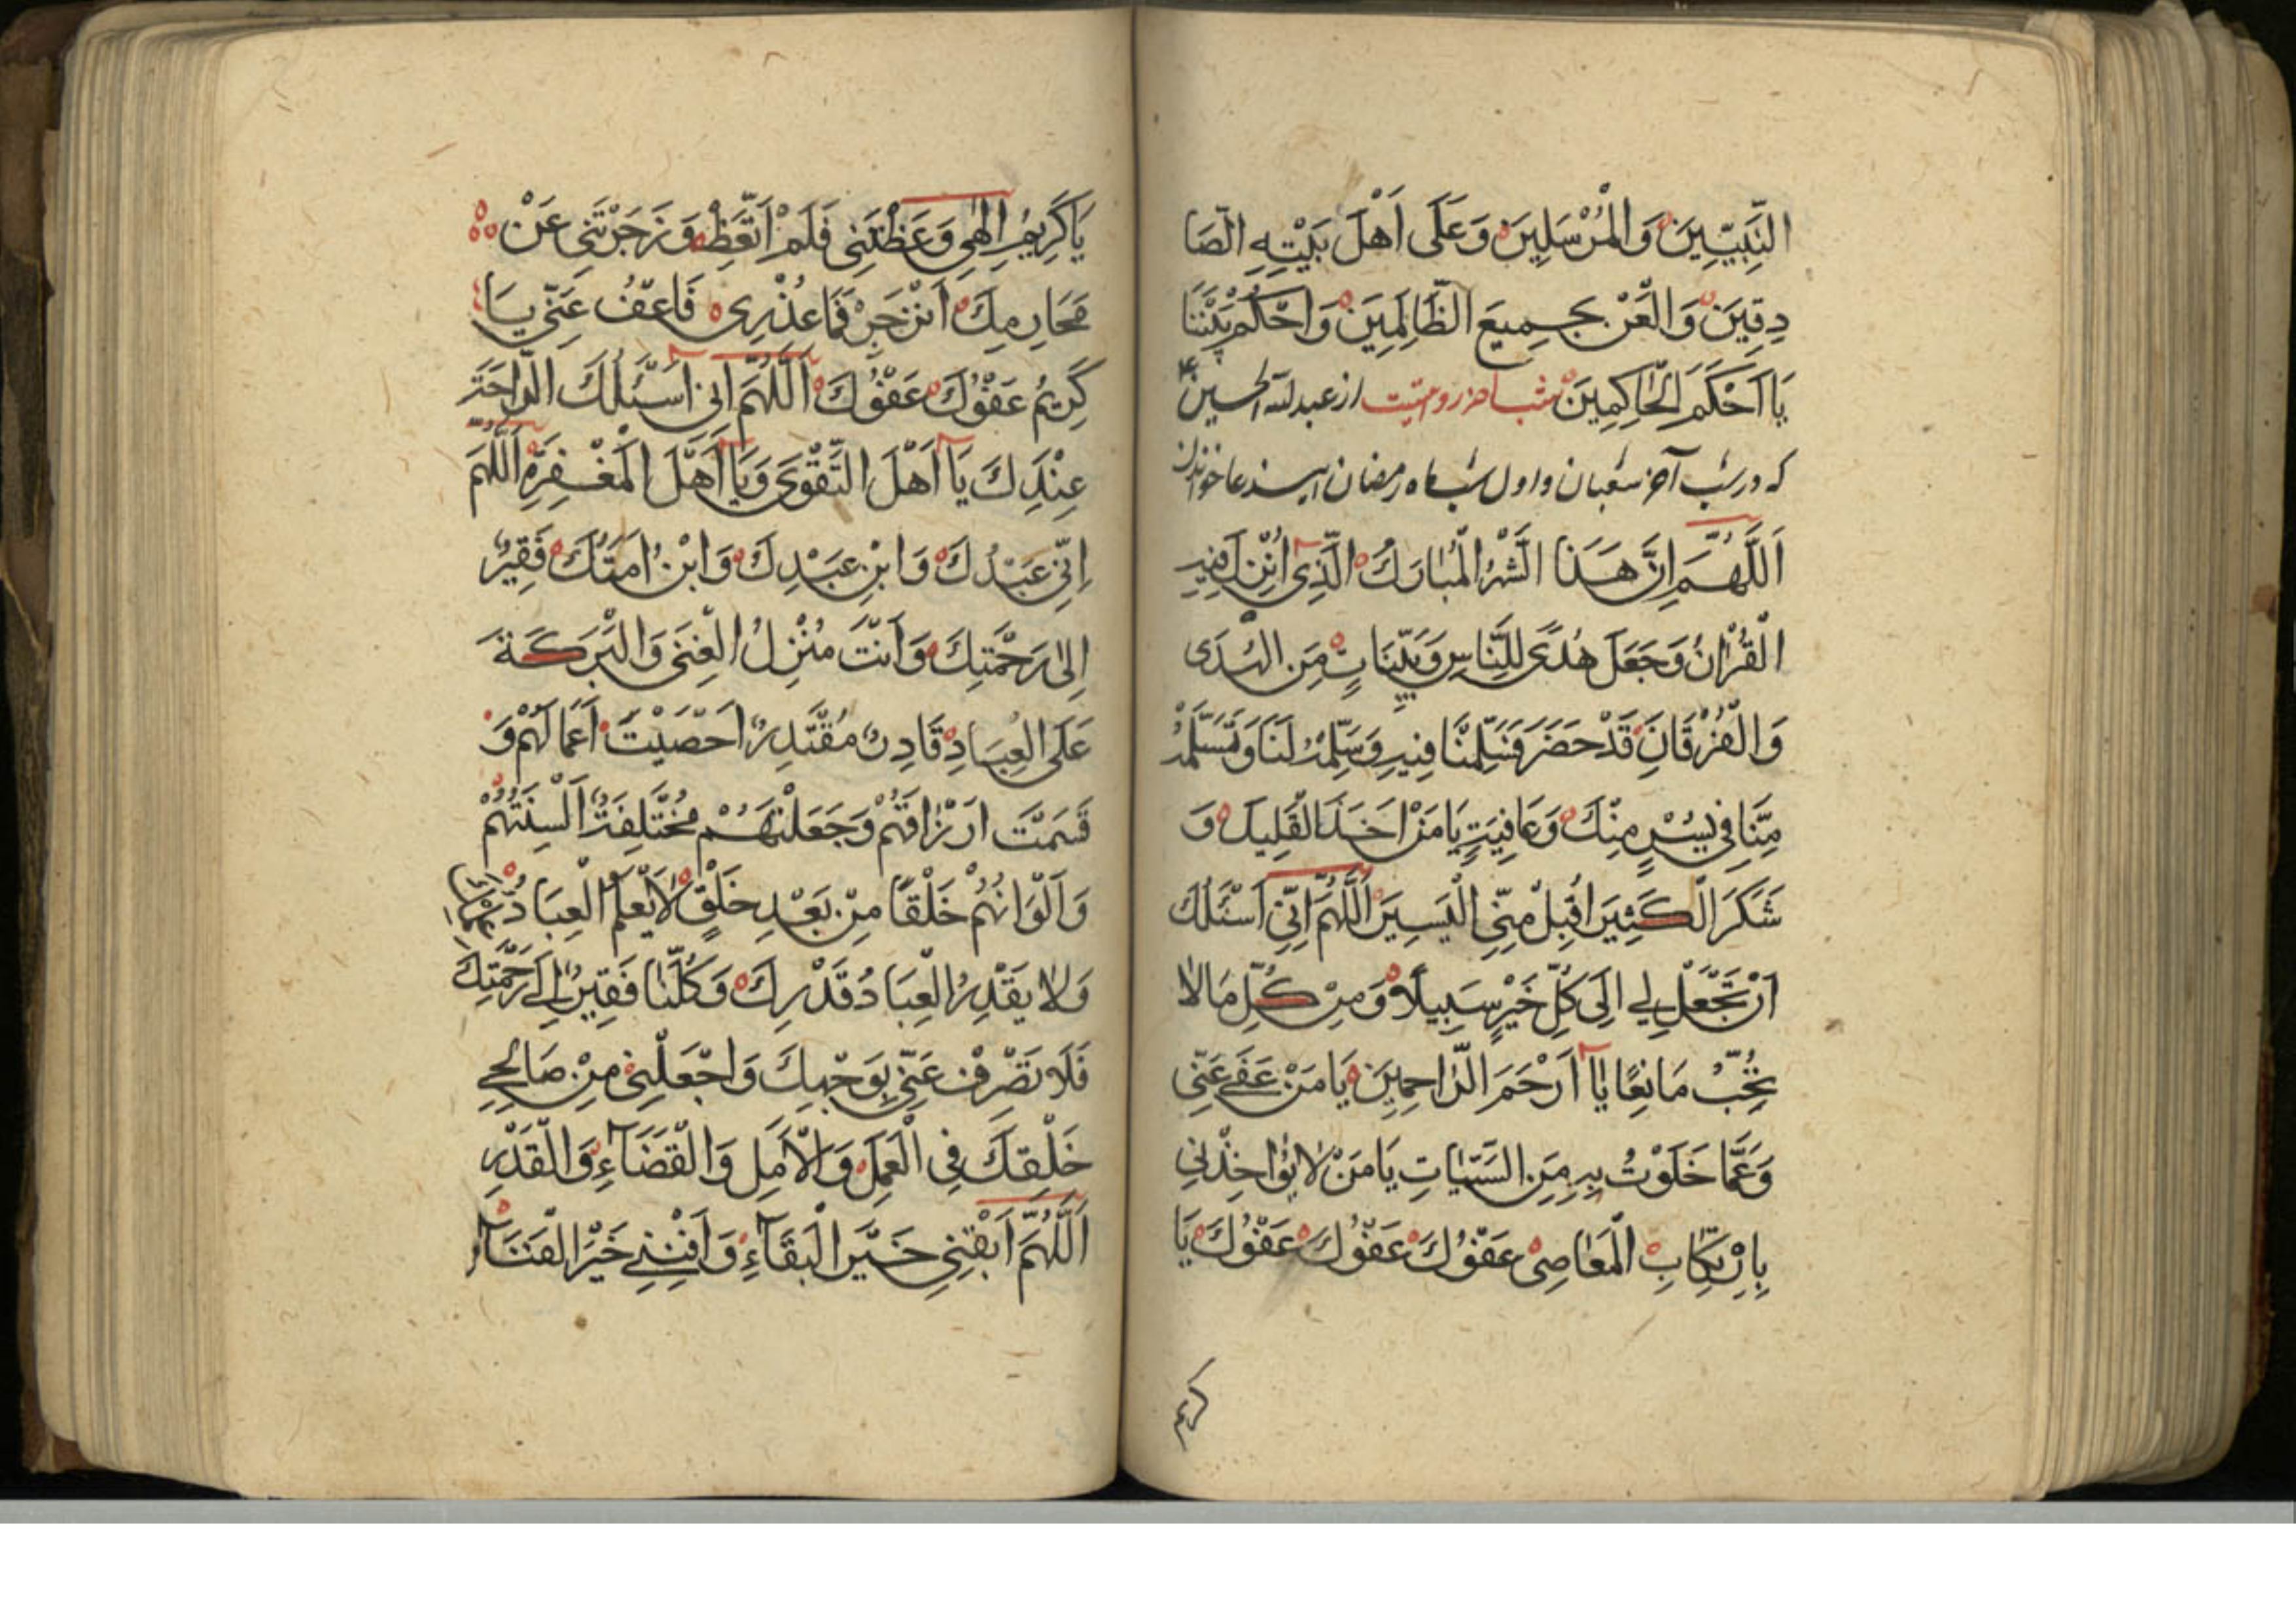 النَّبِيِّينَ وَالْمُرْسَلِينَ وَعَلَى اَهْلِ بَيْتِهِ الصَّا
دِقِينَ وَالْعَنْ جَمِيعَ الظَّالِمِينَ وَاحْكُمْ بَيْنَنَا
يَا اَحْكَمَ الْحَاكِمِينَ روايتست از عبدلله الحسين
که در شب آخر شعبان و اول شب ماه رمضان این دعا خواندن
اَللَّهُمَّ اِنَّ هَذَا الشَّهْرُ الْمُبَارَكُ الَّذِى اُنْزِلَ فِيهِ
الْقُرْانُ وَجَعَلَ هُدًى لِلنَّاسِ وَبَيِّنَاتٍ مِنَ الْهُدَى
وَالْفُرْقَانِ قَدْ حَضَرَ فَسَلِّمْنَا فِيهِ وَسَلِّمْهُ لَنَا وَتَسَلَّمْهُ
مِنَّا فِى يُسْرٍ مِنْكَ وَعَافِيَتٍ يَا مَنْ اَخَذَ الْقَلِيلَ وَ
شَكَرَ الْكَثِيرَ اقْبَلْ مِنِّى الْيَسِيرَ اَللَّهُمَّ اِنِّى اَسْئَلُكَ
اَنْ تَجْعَلَ لِى اِلَى كُلِّ خَيْرٍ سَبِيلًا وَمِنْ كُلِّ مَا لَا
تُحِبُّ مَانِعًا يَا اَرْحَمَ الرَّاحِمِينَ يَا مَنْ عَفَى عَنِّى
وَعَمَّا خَلَوْتُ بِهِ مِنَ السَّيِّئَاتِ يَا مَنْ لَا يُؤَاخِذُنِى
بِارْتِكَابِ الْمَعَاصِى عَفْوُكَ عَفْوُكَ عَفْوُكَ يَا
كريم
يَا كَرِيمُ اِلٰهِى وَعَظْتَنِى فَلَمْ اَتَّعِظْ وَزَجَرْتَنِى عَنْ
مَحَارِمِكَ اَنْزَجِرْ فَمَا عُذْرِى فَاعْفُ عَنِّى يَا
كَرِيمُ عَفْوُكَ عَفْوُكَ اَللَّهُمَّ اِنِى اَسْئَلُكَ الرَّاحَةَ
عِنْدِكَ يَا اَهْلَ التَّقْوَى وَيَا اَهْلَ الْمَغْفِرَةِ اَللَّهُمَّ
اِنِّى عَبْدُكَ وَابْنِ عَبْدِكَ وَابْنُ اَمَتُكَ فَقِيرٌ
اِلَى رَحْمَتِكَ وَاَنْتَ مُنْزِلُ الْغِنَى وَالْبَرَكَةَ
عَلَى الْعِبَادِ قَادِرٌ مُقْتَدِرٌ اَحْصَيْتَ اَعْمَالَهُمْ وَ
قَسَمْتَ اَرْزَاقَهُمْ وَجَعَلْتَهُمْ مُخْتَلِفَةً اَلْسِنَتُهُمْ
وَاَلْوَانُهُمْ خَلْقًا مِنْ بَعْدِ خَلْقٍ لَا يَعْلَمُ الْعِبَادُ
وَلَا يَقْدِرُ الْعِبَادُ قَدْرِكَ وَكُلُّنَا فَقِيرٌ اِلَى رَحْمَتِكَ
فَلَا تَصْرِفْ عَنِّى بِوَجْهِكَ وَاجْعَلْنِى مِنْ صَالِحِى
خَلْقِكَ فِى الْعَمَلِ وَالْاَمَلِ وَالْقَضَآءِ وَالْقَدْرِ
اَللَّهُمَّ اَبْقِنِى خَيْرَ الْبَقَآءِ وَاَفْنِنِى خَيْرَ الْفَنَآءِ